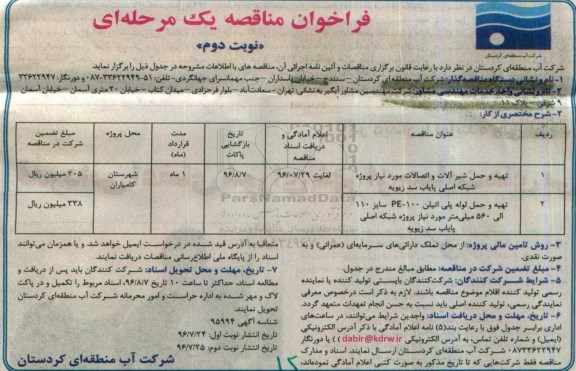 فراخوان مناقصه یک مرحله‌ای
«نوبت دوم»
شرکت آب منطقه‌ای کردستان
شرکت آب منطقه‌ای کردستان در نظر دارد با رعایت قانون برگزاری مناقصات و آئین‌نامه اجرائی آن، مناقصه های با اطلاعات مشروحه در جدول ذیل را برگزار نماید.
۱- نام و نشانی دستگاه مناقصه‌گذار: شرکت آب منطقه‌ای کردستان – سنندج – خیابان پاسداران – جنب مهمانسرای جهانگردی- تلفن: ۵۱-۳۳۶۲۲۹۴۹-۰۸۷ دورنگار: ۳۳۶۲۲۹۴۷
۲- نام و نشانی واحد خدمات مهندسی مشاور: شرکت مهندسین مشاور آبگیر به نشانی: تهران – سعادت‌آباد – بلوار فرحزادی – میدان کتاب – خیابان ۲۰ متری آسمان – خیابان آسمان
شرقی – پلاک ۱۱
۲- شرح مختصری از کار:
ردیف عنوان مناقصه اعلام آمادگی و دریافت اسناد مناقصه تاریخ بازگشایی پاکات مدت قرارداد (ماه) محل پروژه مبلغ تضمین شرکت در مناقصه
۱ تهیه و حمل شیر آلات و اتصالات مورد نیاز پروژه شبکه اصلی پایاب سد زیویه لغایت ۹۶/۰۷/۲۹ ۹۶/۸/۷ ۱ ماه شهرستان کامیاران ۴۰۵ میلیون ریال
۲ تهیه و حمل لوله پلی اتیلن PE-۱۰۰ سایز ۱۱۰ الی ۵۶۰ میلی‌متر مورد نیاز پروژه شبکه اصلی پایاب سد زیویه ۳۳۸ میلیون ریال
۳- روش تامین مالی پروژه: از محل تملک دارائی‌های سرمایه‌ای (عمرانی) و به
صورت نقدی.
۴- مبلغ تضمین شرکت در مناقصه: مطابق مبالغ مندرج در جدول.
۵- شرایط شرکت کنندگان: شرکت‌کنندگان بایستی تولید کننده یا نماینده
رسمی تولید کننده اقلام موضوع مناقصه باشند. لازم به ذکر است درخصوص معرفی
نمایندگی رسمی، تولید کننده اصلی باید نسبت به حسن انجام تعهدات متعهد گردد.
۶- تاریخ، مهلت و محل دریافت اسناد: واجدین شرایط می‌توانند، در ساعت‌های
اداری برابر جدول فوق با رعایت بند(۵) نامه اعلام آمادگی با ذکر آدرس الکترونیکی
(ایمیل) و شماره تلفن تماس، به آدرس الکترونیکی (( dabir@kdrw.ir )) یا دورنگار
۰۸۷۳۳۶۲۲۹۴۷ شرکت آب منطقه‌ای کردستان ارسال نمایند. اسناد و مدارک
مناقصه فقط شرکت‌هایی که تا تاریخ مذکور به صورت کتبی اعلام آمادگی نموده‌اند،
متعاقبا به آدرس قید شده در درخواست ایمیل خواهد شد. و یا همزمان می‌توانند
اسناد را از پایگاه ملی اطلاع‌رسانی مناقصات دریافت نمایند.
۷- تاریخ، مهلت و محل تحویل اسناد: شرکت کنندگان باید پس از دریافت و
مطالعه اسناد، حداکثر تا ساعت ۱۰ تاریخ ۹۶/۸/۷، اسناد مربوط را تکمیل و در پاکت
لاک و مهر شده به اداره حراست و امور محرمانه شرکت آب منطقه‌ای کردستان
تحویل نمایند.
شناسه آگهی ۹۵۹۹۴
تاریخ انتشار نوبت اول: ۹۶/۷/۲۴
تاریخ انتشار نوبت دوم: ۹۶/۷/۲۵
شرکت آب منطقه‌ای کردستان
ParsNamadData